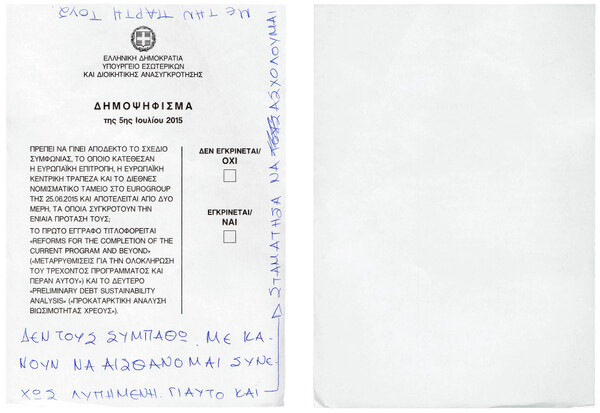 ΕΛΛΗΝΙΚΗ ΔΗΜΟΚΡΑΤΙΑ
ΥΠΟΥΡΓΕΙΟ ΕΣΩΤΕΡΙΚΩΝ
ΚΑΙ ΔΙΟΙΚΗΤΙΚΗΣ ΑΝΑΣΥΓΚΡΟΤΗΣΗΣ
ΔΗΜΟΨΗΦΙΣΜΑ
της 5ης Ιουλίου 2015
ΠΡΕΠΕΙ ΝΑ ΓΙΝΕΙ ΑΠΟΔΕΚΤΟ ΤΟ ΣΧΕΔΙΟ
ΣΥΜΦΩΝΙΑΣ, ΤΟ ΟΠΟΙΟ ΚΑΤΕΘΕΣΑΝ
Η ΕΥΡΩΠΑΪΚΗ ΕΠΙΤΡΟΠΗ, Η ΕΥΡΩΠΑΪΚΗ
ΚΕΝΤΡΙΚΗ ΤΡΑΠΕΖΑ ΚΑΙ ΤΟ ΔΙΕΘΝΕΣ
ΝΟΜΙΣΜΑΤΙΚΟ ΤΑΜΕΙΟ ΣΤΟ EUROGROUP
ΤΗΣ 25.06.2015 ΚΑΙ ΑΠΟΤΕΛΕΙΤΑΙ ΑΠΟ ΔΥΟ
ΜΕΡΗ, ΤΑ ΟΠΟΙΑ ΣΥΓΚΡΟΤΟΥΝ ΤΗΝ
ΕΝΙΑΙΑ ΠΡΟΤΑΣΗ ΤΟΥΣ;
ΤΟ ΠΡΩΤΟ ΕΓΓΡΑΦΟ ΤΙΤΛΟΦΟΡΕΙΤΑΙ
«REFORMS FOR THE COMPLETION OF THE
CURRENT PROGRAM AND BEYOND»
(«ΜΕΤΑΡΡΥΘΜΙΣΕΙΣ ΓΙΑ ΤΗΝ ΟΛΟΚΛΗΡΩΣΗ
ΤΟΥ ΤΡΕΧΟΝΤΟΣ ΠΡΟΓΡΑΜΜΑΤΟΣ ΚΑΙ
ΠΕΡΑΝ ΑΥΤΟΥ») ΚΑΙ ΤΟ ΔΕΥΤΕΡΟ
«PRELIMINARY DEBT SUSTAINABILITY
ANALYSIS» («ΠΡΟΚΑΤΑΡΚΤΙΚΗ ΑΝΑΛΥΣΗ
ΒΙΩΣΙΜΟΤΗΤΑΣ ΧΡΕΟΥΣ»).
ΔΕΝ ΕΓΚΡΙΝΕΤΑΙ/
ΟΧΙ
ΕΓΚΡΙΝΕΤΑΙ/
ΝΑΙ
ΔΕΝ ΤΟΥΣ ΣΥΜΠΑΘΩ. ΜΕ ΚΑ-
ΝΟΥΝ ΝΑ ΑΙΣΘΑΝΟΜΑΙ ΣΥΝΕ-
ΧΩΣ ΛΥΠΗΜΕΝΗ. ΓΙΑΥΤΟ ΚΑΙ
ΣΤΑΜΑΤΗΣΑ ΝΑ ΑΣΧΟΛΟΥΜΑΙ
ΜΕ ΤΗΝ ΠΑΡΤΗ ΤΟΥΣ.